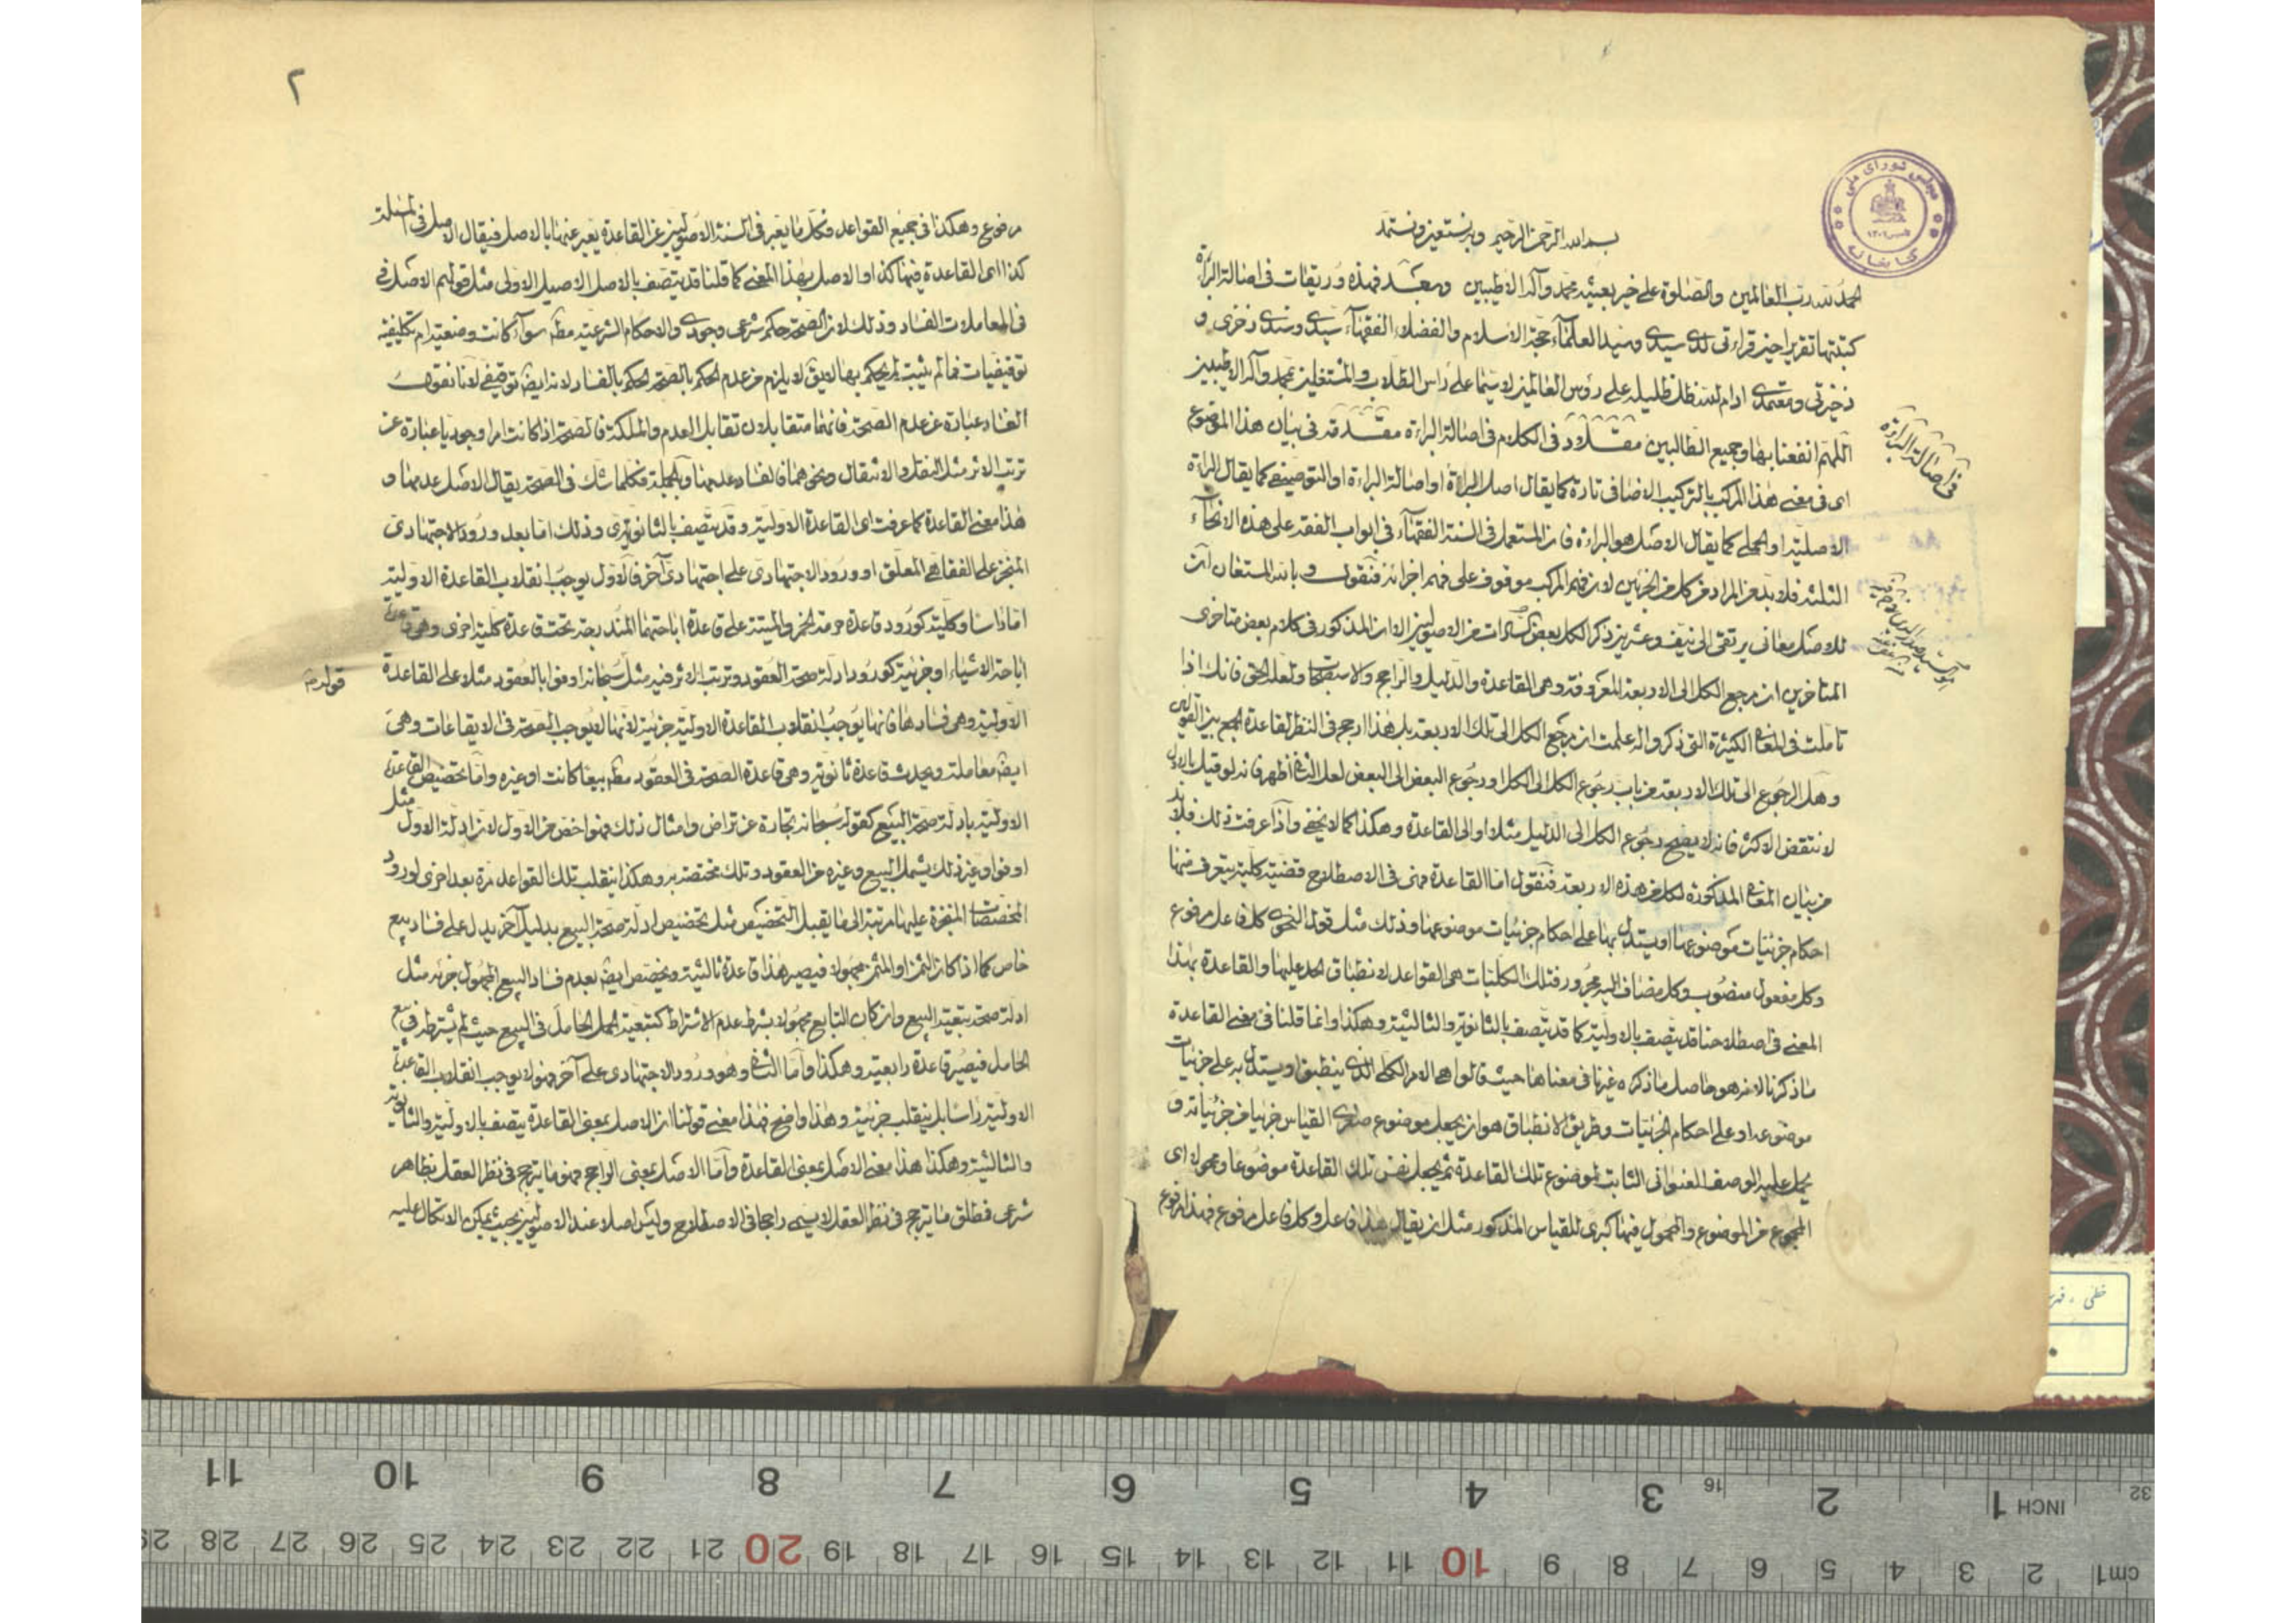 بسم الله الرحمن الرحيم وبه نستعين ونستمد
الحمد لله رب العالمين والصلوة على خير بعيثه محمد وآله الاطيبين وبعد فهذه وريقات في اصالة البراءة
كتبتها تقريرا حين قراءتي لدى سيدي وسيد العلماء حجة الاسلام والفضلاء الفقهاء سيدي وسندي ذخري و
ذخيرتي ومعتمدي ادام الله ظل ظليله على رؤس العالمين لا سيما على رأس الطلاب والمشتغلين بمحمد وآله الاطيبين
اللهم انفعنا بها وجميع الطالبين في الكلام في اصالة البراءة مقدمة في بيان هذا الموضوع
اى في معنى هذا المركب بالتركيب الاضافى تارة كما يقال اصل البراءة او اصالة البراءة او التوصيفى كما يقال البراءة
الاصلية او الحملي كما يقال الاصل هو البراءة فان المستعمل في السنة الفقهاء في ابواب الفقه على هذه الانحاء
الثلثة فلا بد من المراد من كل من الجزئين لان فهم المركب موقوف على فهم اجزائه فنقول وبالله المستعان ان
للاصل معاني يرتقى الى نيف وعشرين ذكر الكل بعض السادات من الاصوليين الا ان المذكور في كلام بعض متاخري
المتاخرين ان مرجع الكل الى الاربعة المعروفة وهى القاعدة والدليل والراجح والاستصحاب ولعله الحق فانك اذا
تاملت في المعاني الكثيرة التي ذكروا له علمت ان مرجع الكل الى تلك الاربعة بل هذا ارجح في النظر لقاعدة الجمع بين القولين
وهل الرجوع الى تلك الاربعة من باب رجوع الكل الى الكل او رجوع البعض الى البعض لعل الثاني اظهر فانه لو قيل بالاول
لانتقض الاكثر فانه لا يصح رجوع الكل الى الدليل مثلا او الى القاعدة وهكذا كما لا يخفى واذا عرفت ذلك فلا بد
من بيان المعاني المذكورة لكل من هذه الاربعة فنقول اما القاعدة فهى في الاصطلاح قضية كلية يتعرف منها
احكام جزئيات موضوعها او يستدل بها على احكام جزئيات موضوعها وذلك مثل قول النحوى كل فاعل مرفوع
وكل مفعول منصوب وكل مضاف اليه مجرور فتلك الكليات هى القواعد لانطباق الحد عليها والقاعدة بهذا
المعنى في اصطلاحنا قد يتصف بالاولية كما قد يتصف بالثانوية والثالثية وهكذا وانما قلنا في معنى القاعدة
ما ذكرنا لانه هو حاصل ما ذكره غيرنا في معناها حيث قالوا هى الامر الكلى الذى ينطبق او يستدل به على جزئيات
موضوعه او على احكام الجزئيات وطريق الانطباق هو ان يجعل موضوع صغرى القياس جزئيا من جزئياته و
يحمل عليه الوصف العنواني الثابت لموضوع تلك القاعدة ثم يجعل نفس تلك القاعدة موضوعا ومحمولا اى
المجموع من الموضوع والمحمول فيها كبرى للقياس المذكور مثل ان يقال هذا فاعل وكل فاعل مرفوع فهذا مرفوع
في اصالة البراءة
مجلس شوراى ملى
كتابخانه
٢
مرفوع وهكذا في جميع القواعد فكل ما يعبر في السنة الاصوليين عن القاعدة يعبر عنها بالاصل فيقال الاصل في المسئلة
كذا اى القاعدة فيها كذا والاصل بهذا المعنى كما قلنا قد يتصف بالاصل الاصيل الاولى مثل قولهم الاصل في
في المعاملات الفساد وذلك لان الصحة حكم شرعى وجودى والاحكام الشرعية مطلقا سواء كانت وضعية ام تكليفية
توقيفيات فما لم يثبت لم يحكم بها لا يق لا يلزم من عدم الحكم بالصحة الحكم بالفساد لانه ايضا توقيفى لانا نقول
الفساد عبارة عن عدم الصحة فانهما متقابلان تقابل العدم والملكة فالصحة اذا كانت امرا وجوديا عبارة عن
ترتب الاثر مثل النقل والانتقال ونحوهما فالفساد عدمها وبالجملة فكلما شك في الصحة يقال الاصل عدمها و
هذا معنى القاعدة كما عرفت اى القاعدة الاولية وقد يتصف بالثانوية وذلك اما بعد ورود الاجتهادى
المنجز على الفقاهى المعلق او ورود الاجتهادى على اجتهادى آخر فالاول يوجب انقلاب القاعدة الاولية
اما راسا وكلية كورود قاعدة حرمة الخمر والميتة على قاعدة اباحتهما المندرجة تحت قاعدة كلية اخرى وهى قاعدة
اباحة الاشياء او جزئية كورود ادلة صحة العقود وترتب الاثر فيه مثل سبحانه اوفوا بالعقود مثلا على القاعدة
الاولية وهى فسادها فانها يوجب انقلاب القاعدة الاولية جزئية لانها لا يوجب الصحة في الايقاعات وهى
ايضا معاملة ويحدث قاعدة ثانوية وهى قاعدة الصحة في العقود مطلقا بيعا كانت او غيره واما تخصيص القاعدة
الاولية بادلة صحة البيع كقوله سبحانه تجارة عن تراض وامثال ذلك فهو اخص من الاول لان ادلة الاول مثل
اوفوا وغير ذلك يشمل البيع وغيره من العقود وتلك مختصة به وهكذا ينقلب تلك القواعد مرة بعد اخرى لورود
المخصصات المنجزة عليها مرتبة الى ما يقبل التخصيص مثل تخصيص ادلة صحة البيع بدليل آخر يدل على فساد بيع
خاص كما اذا كان الثمن او المثمن مجهولا فيصير هذا قاعدة ثالثية ويخصص ايضا بعدم فساد البيع المجهول جزئه مثل
ادلة صحة تبعية البيع وان كان التابع مجهولا بشرط عدم الاشتراط كتبعية الحمل الحامل في البيع حيث لم يشترط في بيع
الحامل فيصير قاعدة رابعية وهكذا واما الثاني وهو ورود الاجتهادى على آخر فهو لا يوجب انقلاب القاعدة
الاولية راسا بل ينقلب جزئية وهذا واضح فهذا معنى قولنا ان الاصل بمعنى القاعدة يتصف بالاولية والثانوية
والثالثية وهكذا هذا معنى الاصل بمعنى القاعدة واما الاصل بمعنى الراجح فهو ما يترجح في نظر العقل بظاهر
شرعى فمطلق ما يترجح في نظر العقل لا يسمى راجحا في الاصطلاح وليس اصلا عند الاصوليين بحيث يمكن الاتكال عليه
قوله
خطى
INCH 1 2 3 4 5 6 7 8 9 10 11
cm 1 2 3 4 5 6 7 8 9 10 11 12 13 14 15 16 17 18 19 20 21 22 23 24 25 26 27 28 29